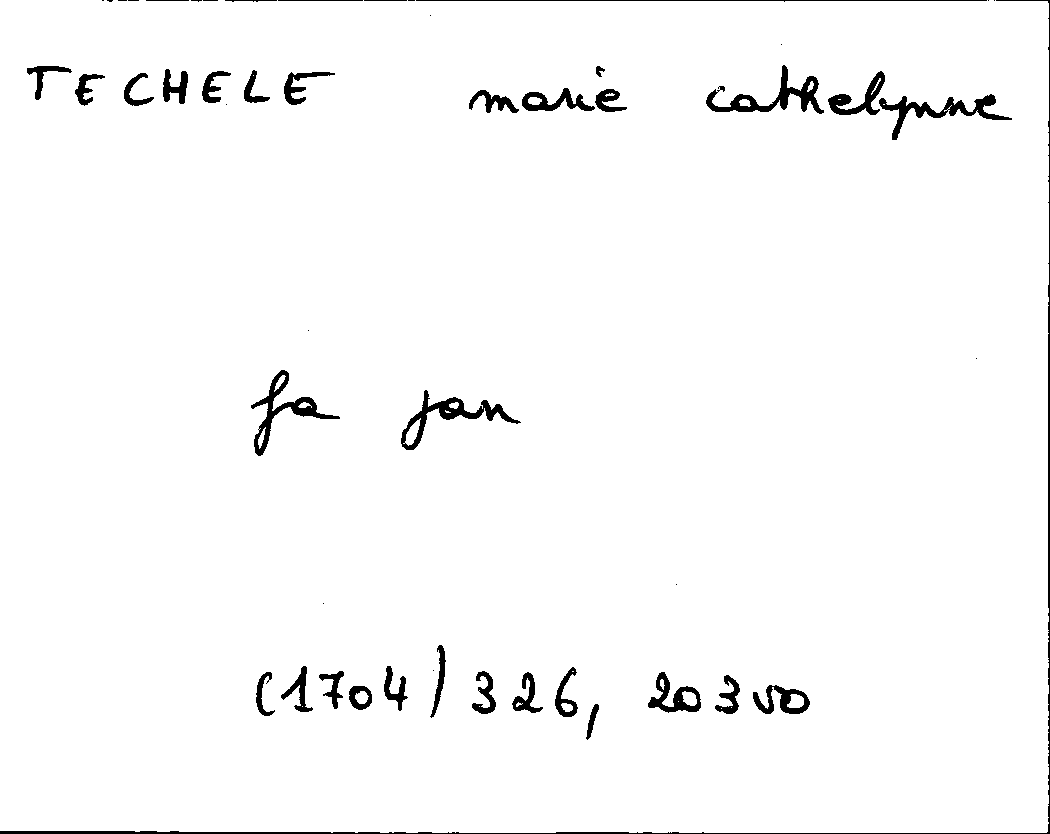 TECHELE marie cathelynne
fa jan
(1704) 326, 203 vo